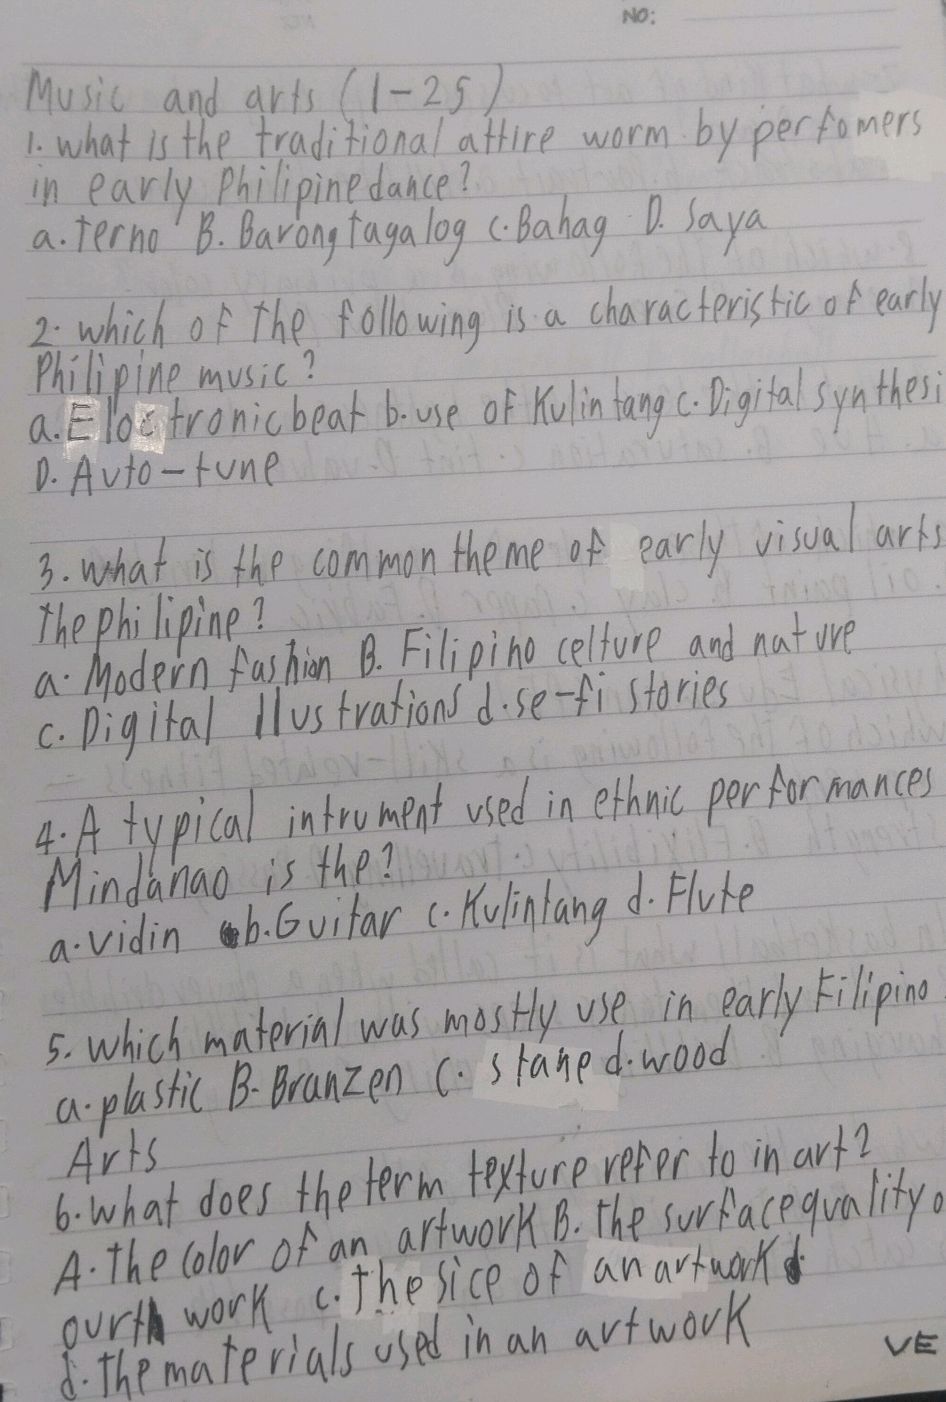 NO:
Music and arts (1-25)
1. what is the traditional attire worm by perfomers
in early Philipine dance?
a. Terno B. Barong tagalog c. Bahag D. Saya
2. which of the following is a characteristic of early
Philipine music?
a. Eloctronic beat b. use of Kulintang c. Digital synthesi
D. Auto-tune
3. what is the common theme of early visual arts
the philipine?
a. Modern fashion B. Filipino celture and nature
c. Digital Ilustrations d. se-fi stories
4. A typical intrument used in ethnic performances
Mindanao is the?
a. vidin b. Guitar c. Kulintang d. Flute
5. which material was mostly use in early Filipino
a. plastic B. Branzen C. stane d. wood
Arts
6. what does the term texture refer to in art?
A. the color of an artwork B. the surface quality o
ourth work c. the sice of an artwork
d. the materials used in an artwork
VE